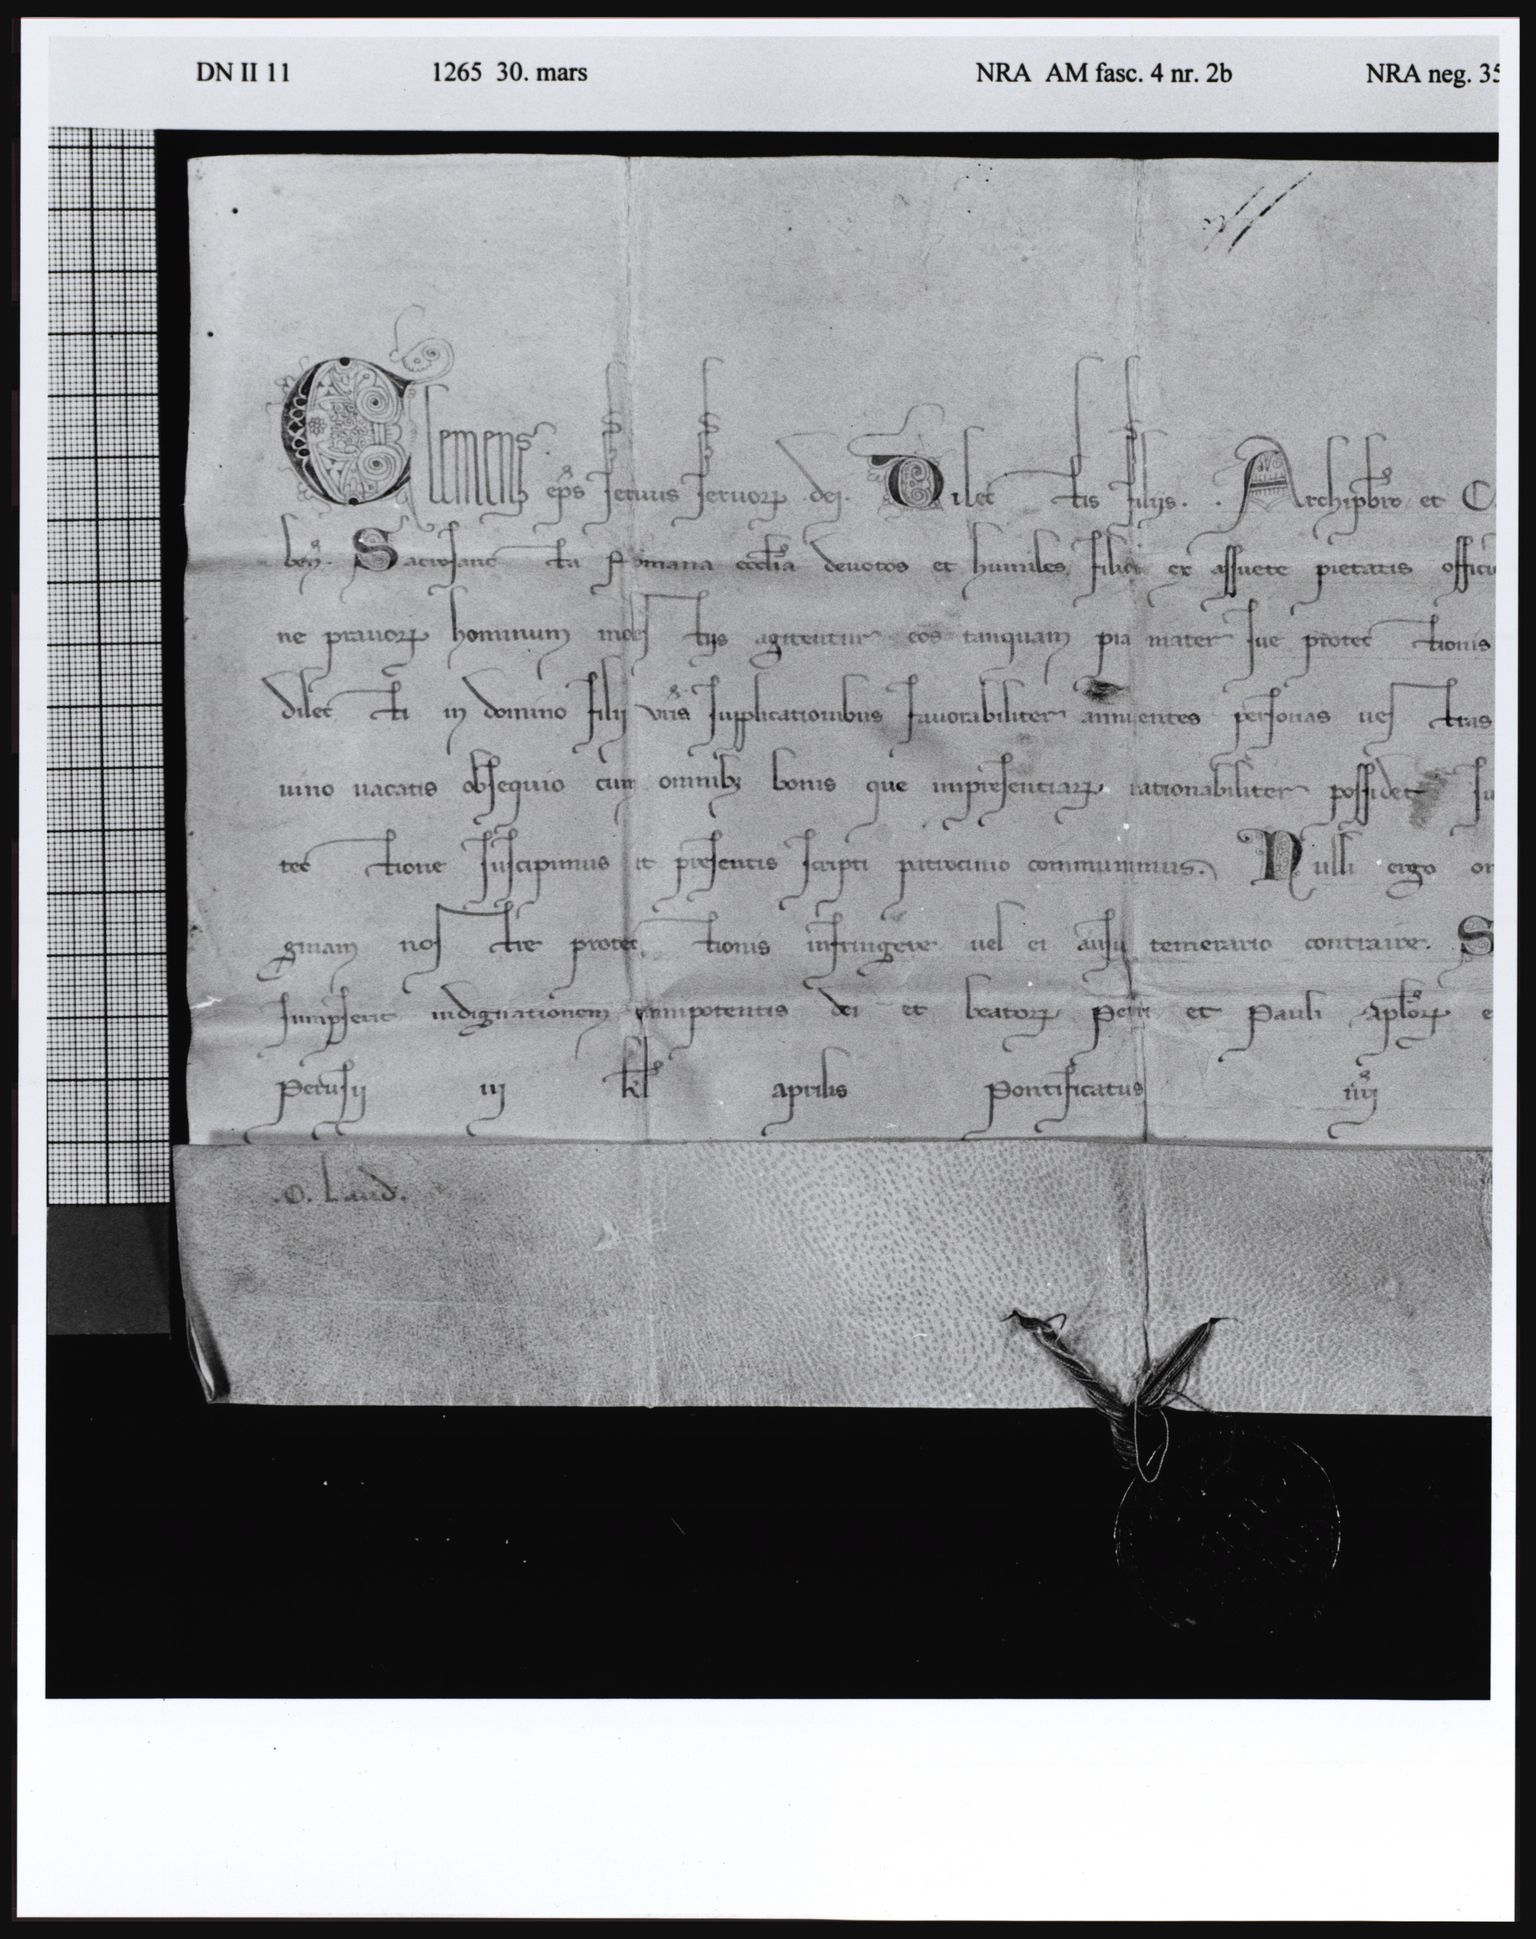 DN II 11 1265 30. mars NRA AM fasc. 4 nr. 2b NRA neg. 35
Clemens ep̄s seruus seruoꝝ dei. Dilectis filijs. . Archipbr̄o et C
ben̄. Sacrosancta Romana eccl̄ia deuotos et humiles filios ex assuete pietatis offici
ne prauoꝝ hominum molestijs agitentur eos tanquam pia mater sue protectionis
dilecti in domino filij vr̄is supplicationibus fauorabiliter annuentes personas uestras
uino uacatis obsequio cum omnibꝫ bonis que impresentiaꝝ rationabiliter possidet su
tectione suscipimus et presentis scripti patrocinio communimus. Nulli ergo om
ginam nostre protectionis infringere uel ei ausu temerario contraire. S
sumpserit indignationem omnipotentis dei et beatoꝝ Petri et Pauli apl̄oꝝ e
Perusii iij kl̄ aprilis Pontificatus nr̄i
.O. Laud.